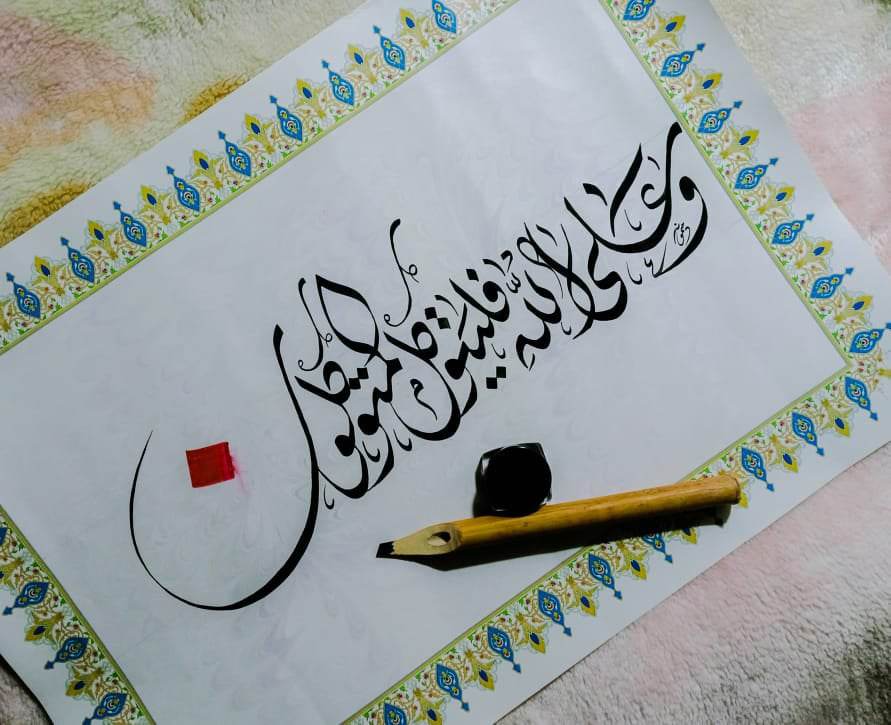 وعلى الله فليتوكل المتوكلون